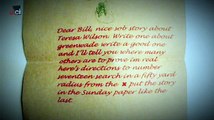 Dear Bill, nice sob story about
Teresa Wilson. Write one about
greenwade write a good one
and I'll tell you where many
others are to prove im real
here's directions to number
seventeen search in a fifty yard
radius from the x put the story
in the Sunday paper like the
last